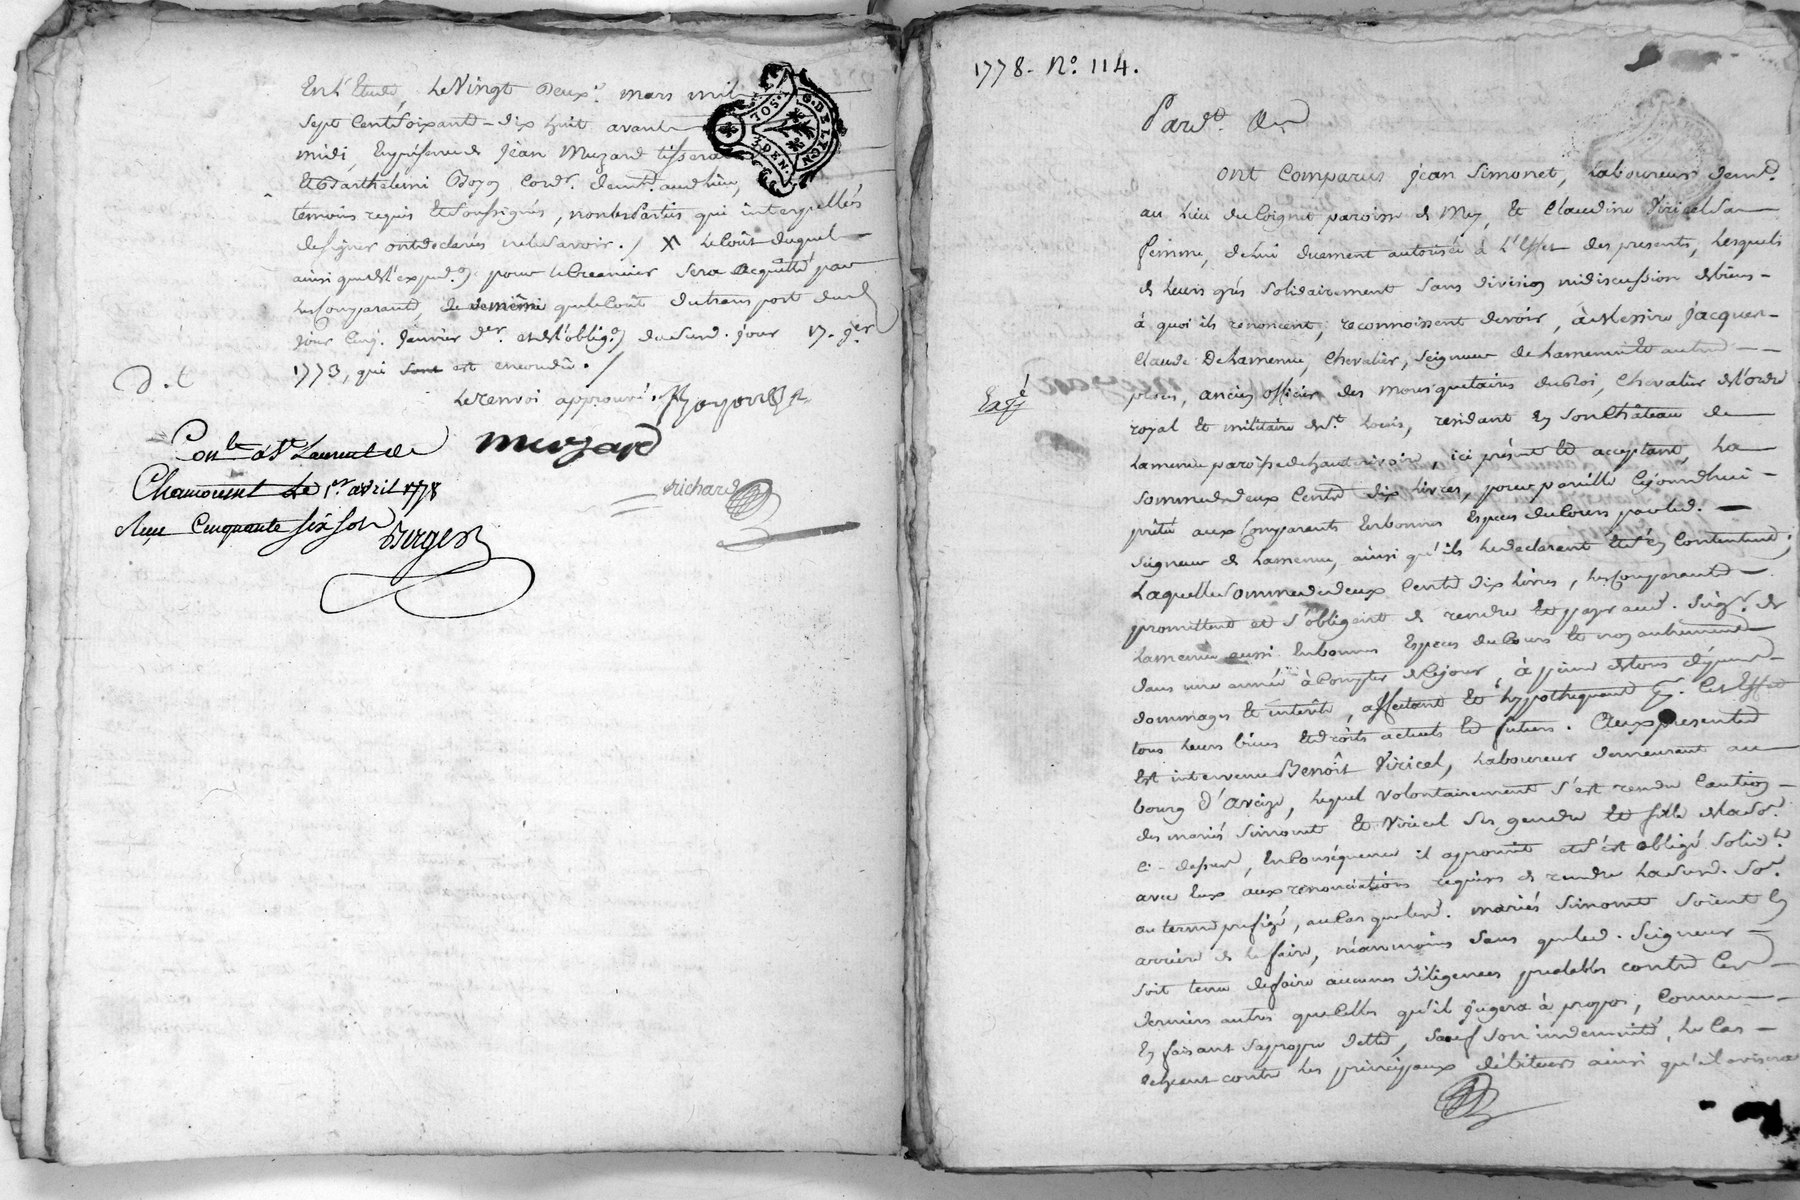 En l'Etude le Vingt deux.e mars mil
sept Cent Soixante-dix huit avant
midi, En présence de Jean Muzard tissera
et Barthelemi Boyon Cord.r demt. aud. lieu,
temoins requis et soussignés, non les parties qui interpellées
de signer ont declarés ne le savoir ./ X le Coût duquel
ainsi que de l'exped.on pour le Creancier sera acquitté par
les Comparants, de meme que le Coût du transport dud.
jour Cinq. Janvier d.er et de l'oblig.on du susd. jour 17. j.er
1773, qui sont est encore dû ./
d. t
le renvoi approuvé. Boyon
Conlé à St Laurent de
muzard
Chamousset le 1er avril 1778
richard
Reçu Cinquante six sols
Berger
G. DE LYON
1 SOL
DEN.
1778 - No. 114.
Pard.t &.a
ont Comparus Jean Simonet, laboureur demt.
au lieu du Coignet paroisse de Mey, et Claudine Viricel Sa
femme, de lui duement autorisée à l'effet des presentes, lesquels
de leurs grés solidairement sans division ni discussion de biens
à quoi ils renoncent, reconnoissent devoir, à Messire Jacques
Claude De lamenue, Chevalier, Seigneur de lamenue et autres
places, ancien officier des mousquetaires du Roi, Chevalier de l'ordre
Exp.é
royal et militaire de St. Louis, residant en son Château de
lamenue paroisse de hauterivoire, ici présent et acceptant, la
somme de deux Cents dix livres, pour pareille Cejourdhui
prêtée aux Comparants En bonnes Especes du Cours par led.
Seigneur de lamenue, ainsi qu'ils le declarent et s'en Contentent;
laquelle Somme de deux Cents dix livres, les Comparants
promettent et s'obligent de rendre et payer aud. Seigr. de
lamenue aussi En bonnes Especes du Cours et non autrement
dans une année à Compter de Cejour, à peine de tous dépens
dommages et intérêts, affectant et hypothequant pr. Cet Effet
tous leurs biens et droits actuels et futurs. Aux presentes
Est intervenu Benoît Viricel, laboureur demeurant au
bourg d'aveize, lequel volontairement s'est rendu Caution
des mariés Simonet et Viricel ses gendre et fille de la so.e
Ci-dessus, En Conséquence il a promis et s'est obligé solid.t
avec Eux aux renonciations requises de rendre la susd. So.e
au terme prefigé, au Cas que lesd. mariés Simonet soient en
arriere de le faire, néanmoins sans que led. Seigneur
soit tenu de faire aucunes diligences prealables contre Ces
derniers autres que Celles qu'il jugera à propos, Comme
En faisant sa propre dette, sauf son indemnité, le Cas
échéant contre les principaux débiteurs ainsi qu'il avisera